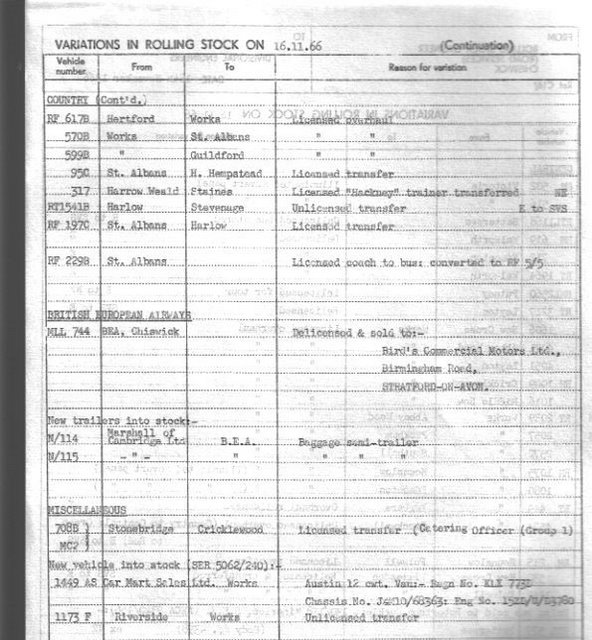 VARIATIONS IN ROLLING STOCK ON 16.11.66 (Continuation)
Vehicle number From To Reason for variation
COUNTRY (Cont'd.)
RF 617B Hertford Works Licensed overhaul
570B Works St. Albans " "
599B " Guildford " "
95C St. Albans H. Hempstead Licensed transfer
317 Harrow Weald Staines Licensed "Hackney" trainer transferred
RT1541B Harlow Stevenage Unlicensed transfer E to SVS
RF 197C St. Albans Harlow Licensed transfer
RF 229B St. Albans Licensed coach to bus: converted to RF 5/5
BRITISH EUROPEAN AIRWAYS
MLL 744 BEA, Chiswick Delicensed & sold to:-
Bird's Commercial Motors Ltd.,
Birmingham Road,
STRATFORD-ON-AVON.
New trailers into stock:-
N/114 Marshall of Cambridge Ltd B.E.A. Baggage semi-trailer
N/115 - " - " " " "
MISCELLANEOUS
708B ) Stonebridge Cricklewood Licensed transfer (Catering Officer (Group 1)
MC2 )
New vehicle into stock (SER 5062/240):-
1449 AS Car Mart Sales Ltd. Works Austin 12 cwt. Van:- Regn No. KLX 773D
Chassis No. Eng No.
1173 F Riverside Works Unlicensed transfer